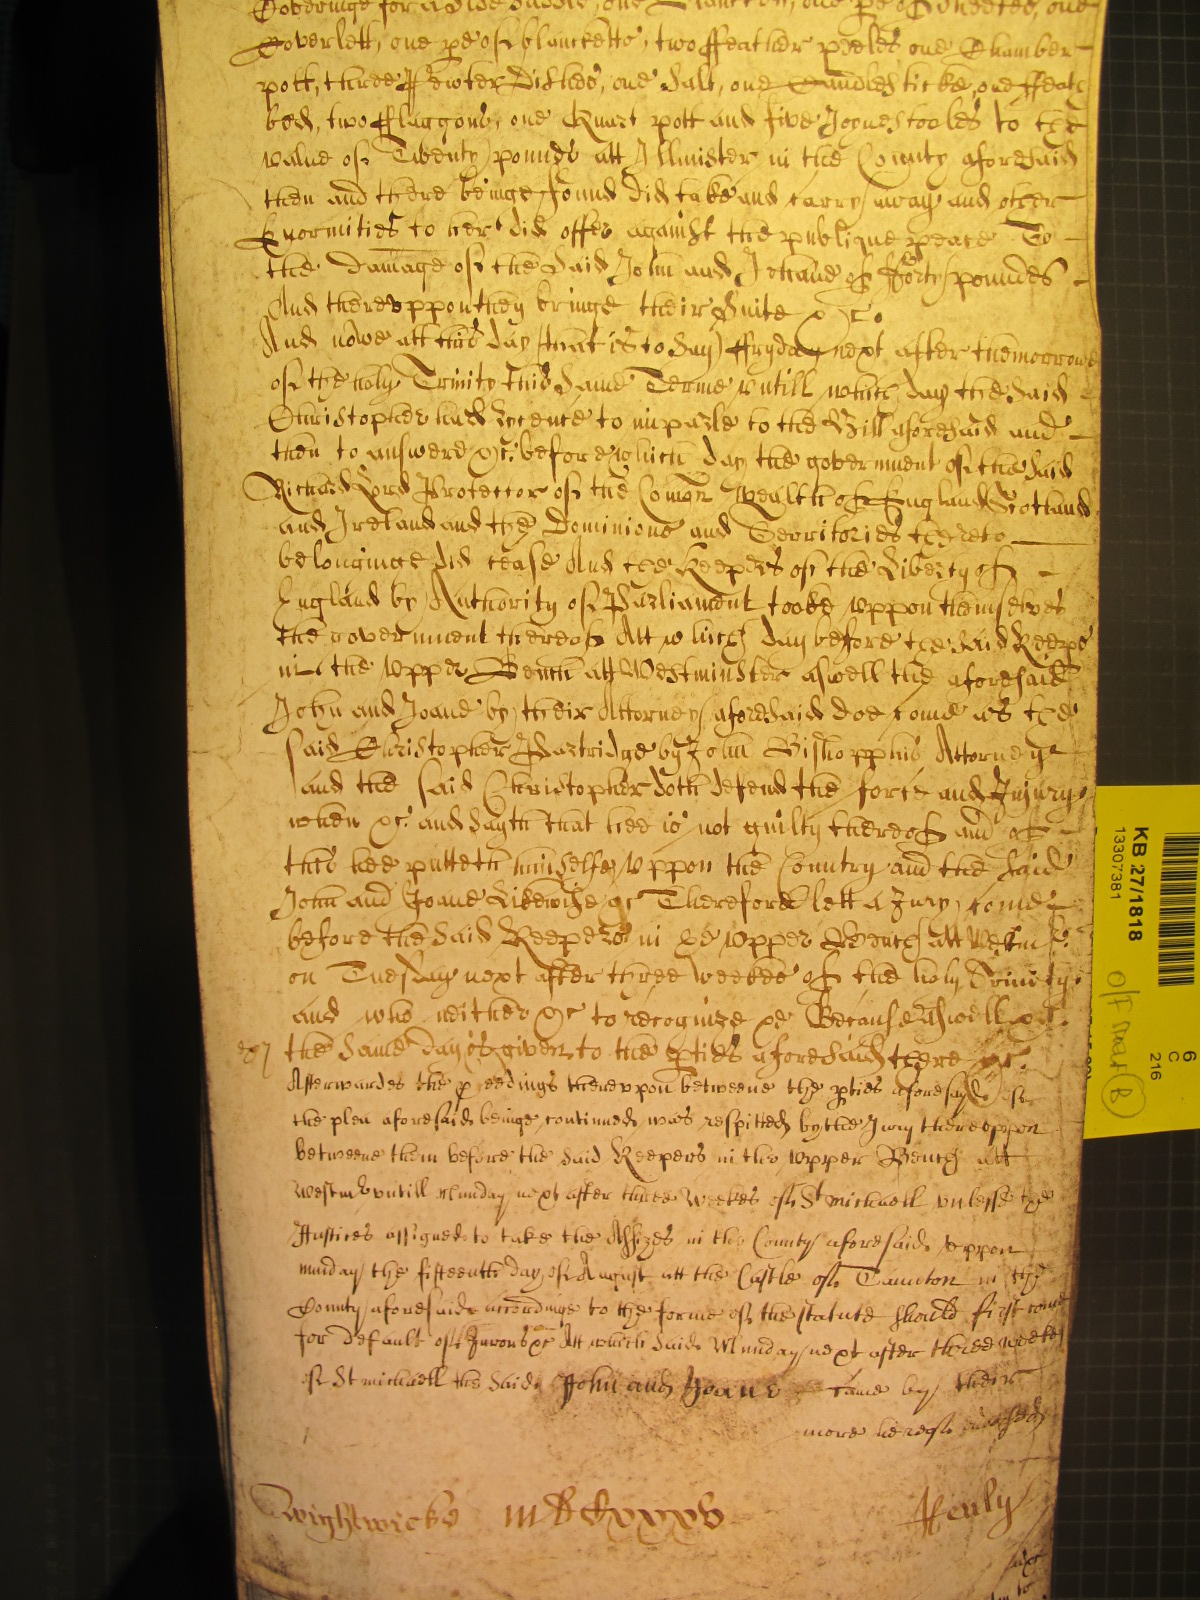 Coveringe for a Side Saddle, one Blanckett, one pe of Sheetes, one
Coverlett, one pe of blancketts, two ffeather peeles one Chamber
pott, three Pewter Dishes, one Salt, one Candlesticke, one ffeather
bed, two fflaggons, one Quart pott and five Joynestooles to the
value of Twenty pounds att Illmister in the County aforesaid
then and there beinge found did take and carry away and other
Enormities to her did offer against the publique peace To
the damage of the said John and Johane of fforty poundes
And thereuppon they bringe their Suite &c.
And nowe att this day (that is to say) ffryday next after the morrowe
of the holy Trinity this same Terme untill which day the said
Christopher had lycence to imparle to the Bill aforesaid and
then to answere &c. before which day the government of the said
Richard Lord Protector of the Comon Wealth of England Scotland
and Ireland and the Dominions and Territories thereto
belonginge did cease And the Keepers of the Liberty of
England by Authority of Parliament tooke uppon themselves
the government thereof Att which day before the said Keeps
in the upper Bench att Westminster aswell the aforesaid
John and Joane by their Attorney aforesaid doe come as the
said Christopher Partridge by John Bishopp his Attorney
and the said Christopher doth defend the force and Injury
when &c. and sayth that hee is not guilty thereof and of
this hee putteth himselfe uppon the Country and the said
John and Joane Likewise &c Therefore lett a Jury come
before the said Keepers in the upper Bench att Westm
on Tuesday next after three weekes of the holy Trinity
and who neither &c to recognize &c Because aswell &c.
the same day is given to the pties aforesaid there &c.
Afterwardes the pceedings thereuppon betweene the pties aforesayd of
the plea aforesaid beinge continued was respitted by the Jury thereuppon
betweene them before the said Keepers in the upper Bench att
Westm untill Munday next after three Weekes of St Michaell unlesse the
Justices assigned to take the Assizes in the County aforesaid uppon
munday the fifteenth day of August att the Castle of Taunton in the
County aforesaid accordinge to the forme of the statute should first come
for default of Jurors &c Att which said Munday next after three weekes
of St michaell the said John and Joane came by their
more hereof
Wightwicke
ffenly
KB 27/1818
13307381
6
C
216